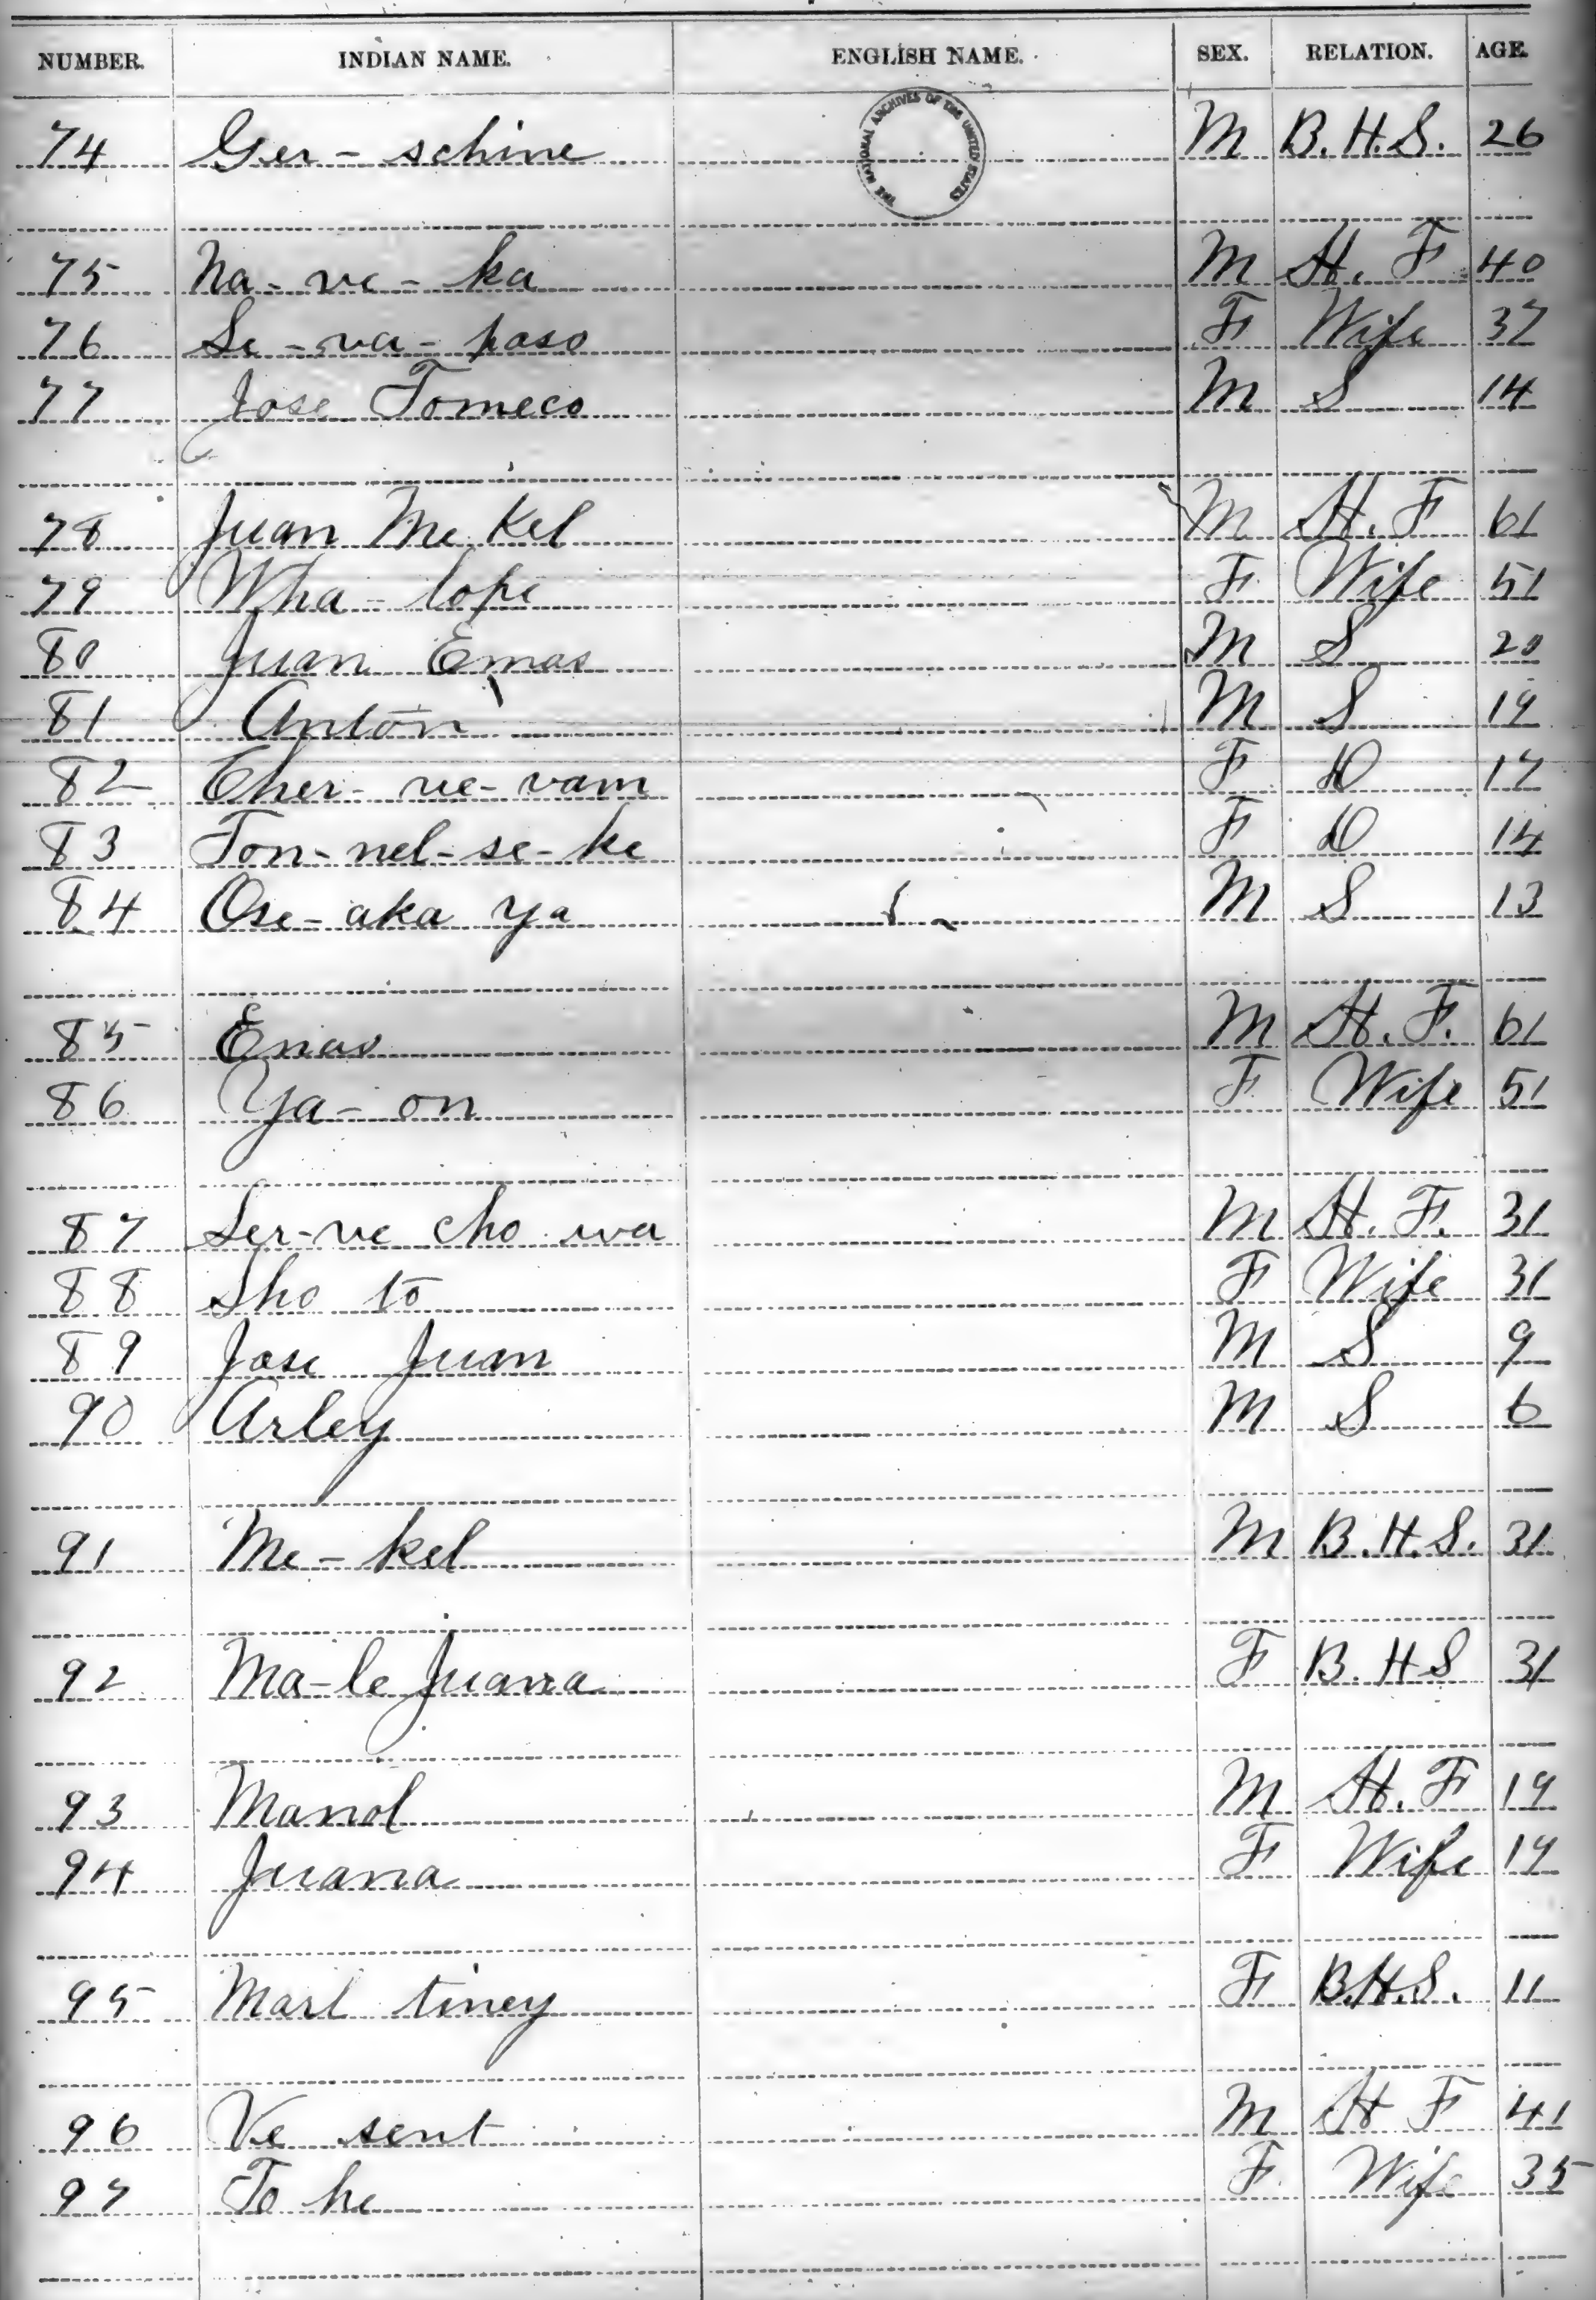 NUMBER. INDIAN NAME. ENGLISH NAME. SEX. RELATION. AGE.
THE NATIONAL ARCHIVES OF THE UNITED STATES
74 Ger - schine M B.H.S. 26
75 Na - ve - ka M H. F 40
76 Se - va - paso F Wife 37
77 Jose Tomeco M S 14
78 Juan Me Kel M H. F 61
79 Wha - lope F Wife 51
80 Juan Emas M S 20
81 Anton M S 19
82 Cher - ve - vam F D 17
83 Ton - nel - se - ke F D 14
84 Ose - aka ya M S 13
85 Enas M H. F. 61
86 Ya - on F Wife 51
87 Ser - ve cho wa M H. F. 31
88 Sho to F Wife 31
89 Jose Juan M S 9
90 Arley M S 6
91 Me - kel M B.H.S. 31
92 Ma - le Juana F B. H S 31
93 Manol M H. F 19
94 Juana F Wife 19
95 Marl tiney F B.H.S. 11
96 Ve sent M H F 41
97 To he F. Wife 35